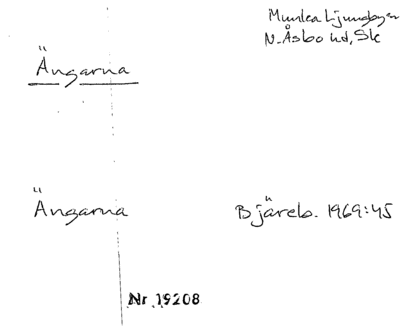 Munka Ljungbyn
N. Åsbo hd, Sk
Ängarna
Ängarna Bjäreb. 1969:45
Nr 19208